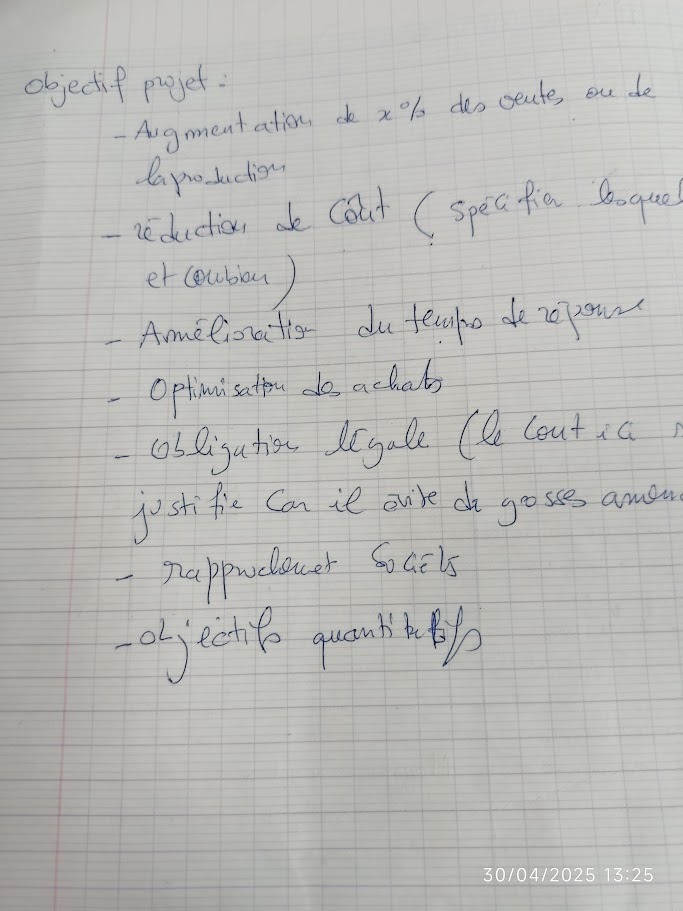 Objectif projet :
- Augmentation de x % des ventes ou de
la production
- réduction de Coût ( spécifier lesquel
et combien )
- Amélioration du temps de réponse
- Optimisation des achats
- Obligation légale (le Cout ici
justifie Car il évite de grosses amen
- rapprochement Sociétés
- objectifs quantitatifs
30/04/2025 13:25